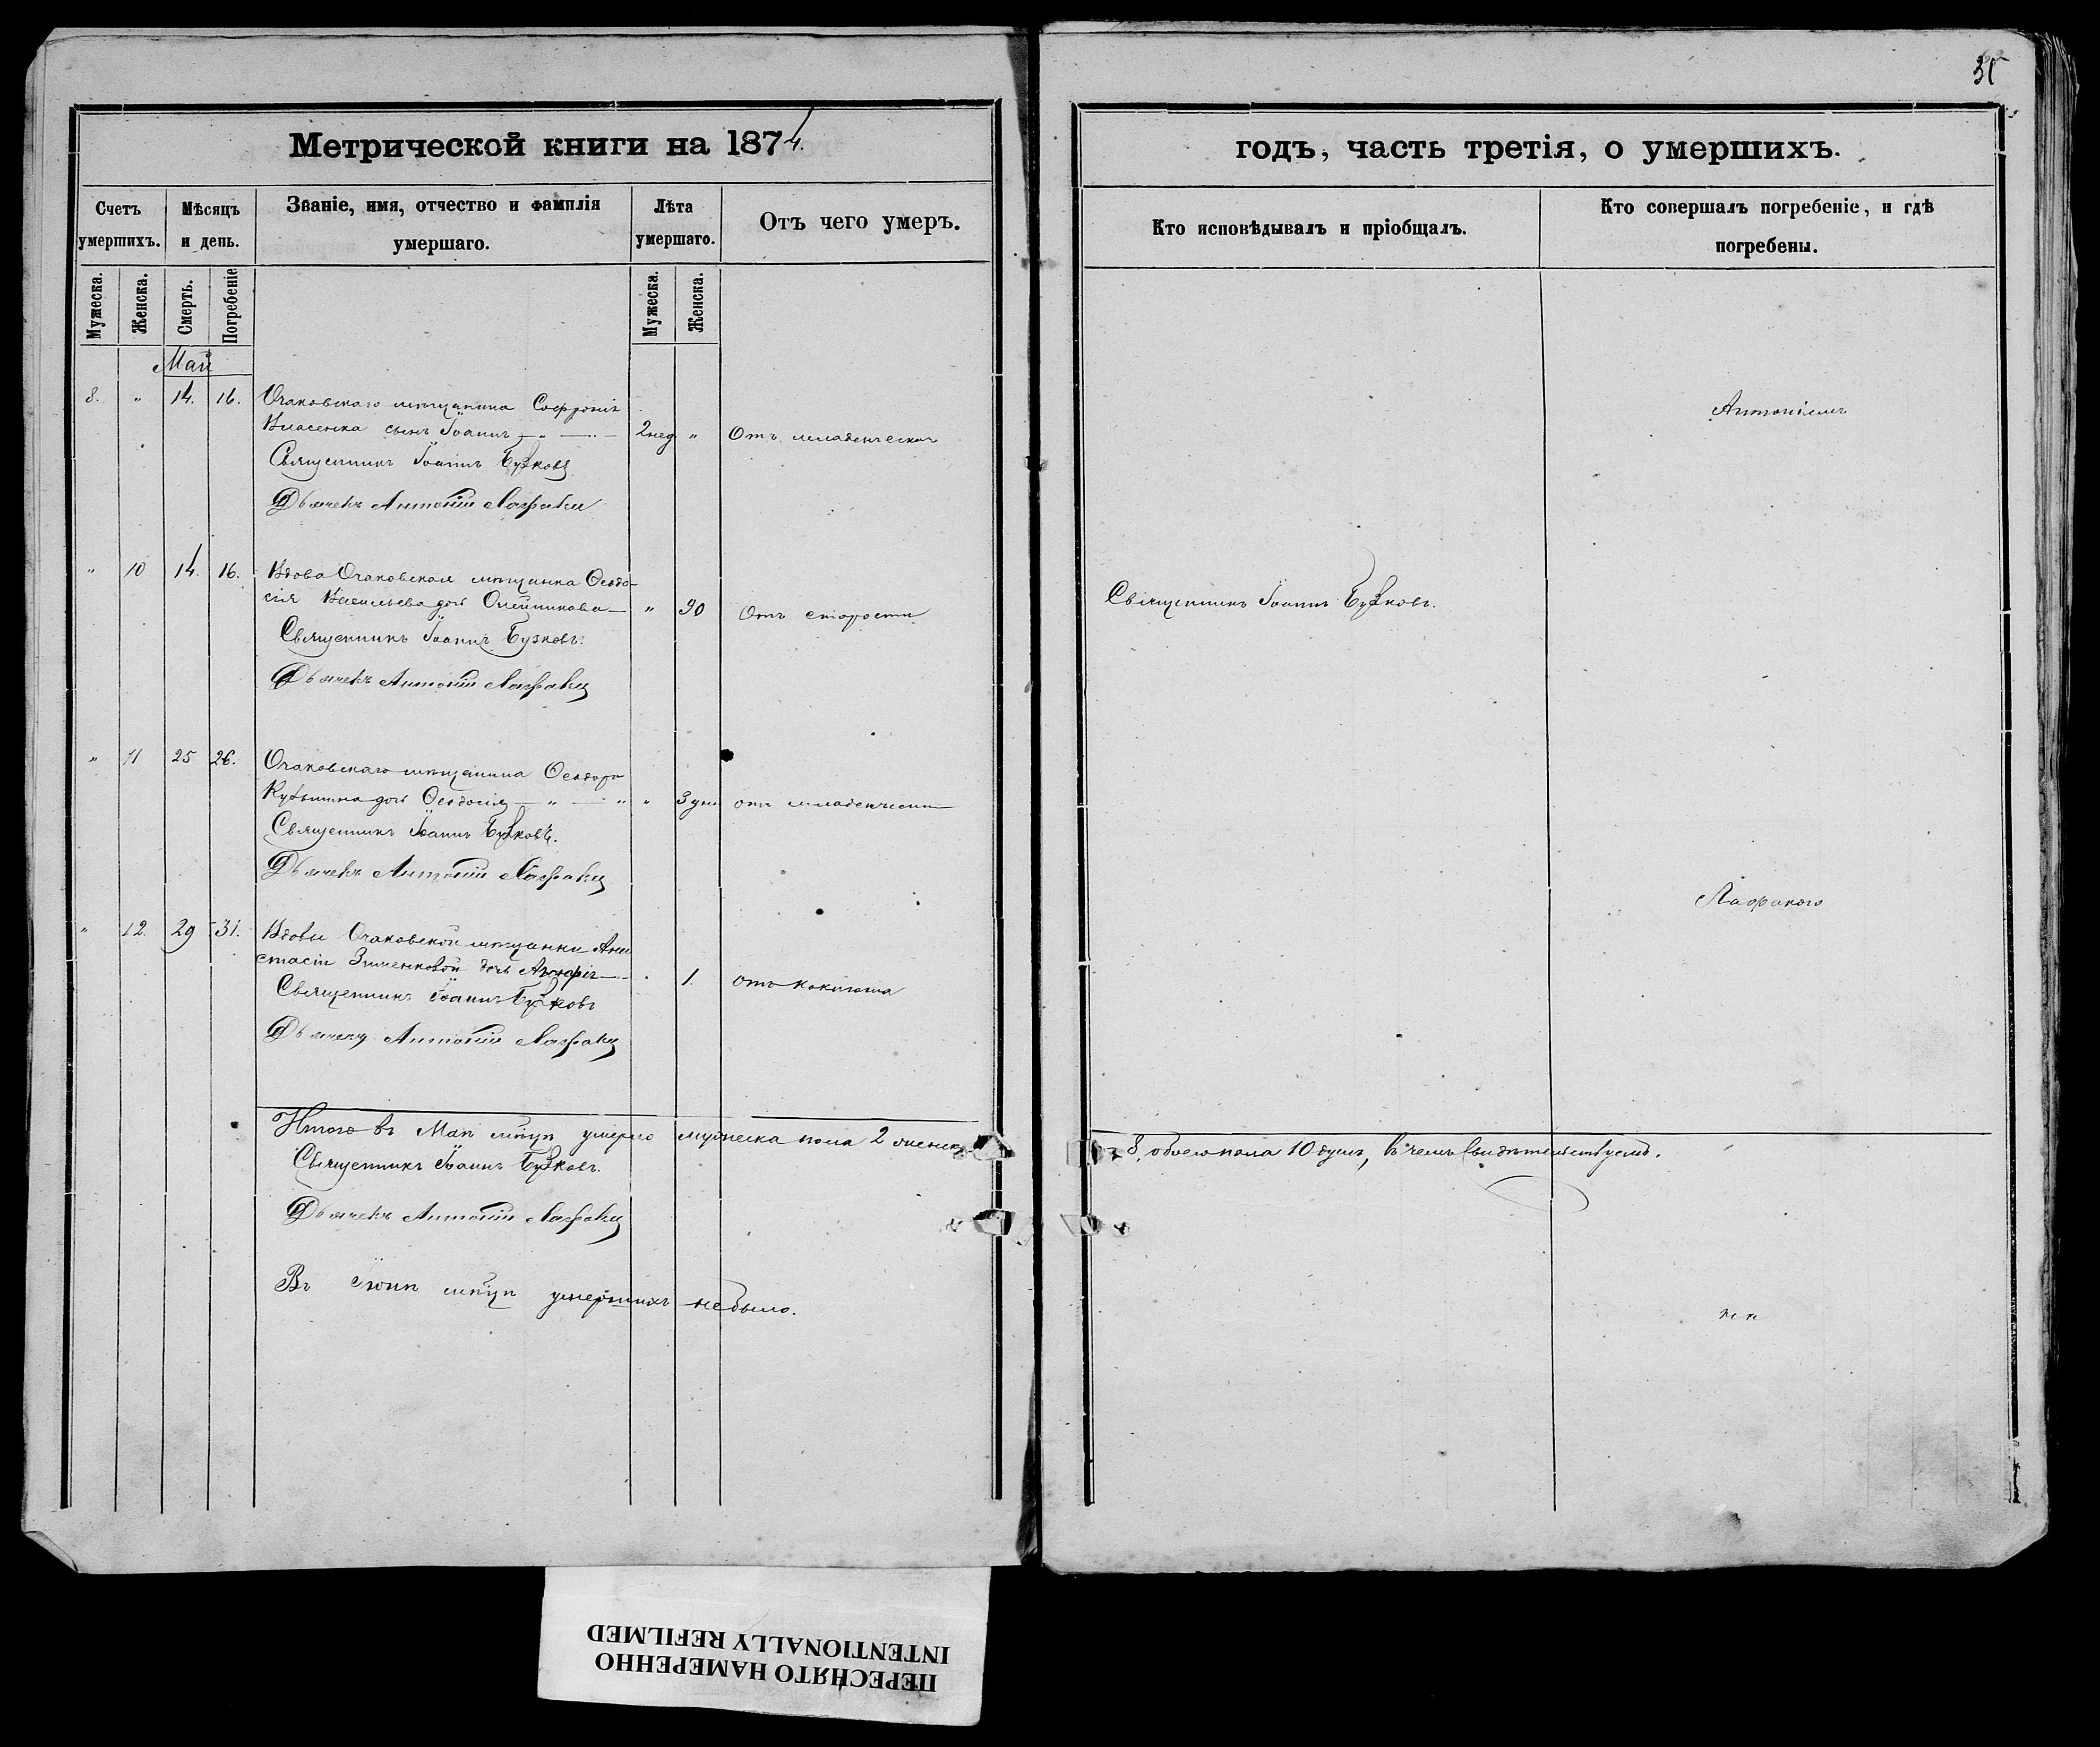 35
Метрической книги на 1874
годъ, часть третія, о умершихъ.
Счетъ умершихъ.
Мѣсяцъ и день.
Званіе, имя, отчество и фамилія умершаго.
Лѣта умершаго.
Отъ чего умеръ.
Кто исповѣдывалъ и пріобщалъ.
Кто совершалъ погребеніе, и гдѣ погребены.
Мужеска.
Женска.
Смерть.
Погребеніе
Мужеска.
Женска.
Май
8. " 14. 16. Очаковскаго мѣщанина Софронія
Власенка сынъ Іоаннъ 2 нед " Отъ младенческой
Священникъ Іоаннъ Бузковъ
Дьячекъ Антоній
Антоніемъ
" 10 14. 16. Вдова Очаковская мѣщанка Ѳеодо-
сія Васильева дочь Олейникова " 90 Отъ старости
Священникъ Іоаннъ Бузковъ.
Священникъ Іоаннъ Бузковъ.
Дьячекъ Антоній
" 11 25 26. Очаковскаго мѣщанина Ѳеодора
дочь Ѳеодосія " 3 дни отъ младенческой
Священникъ Іоаннъ Бузковъ.
Дьячекъ Антоній
" 12. 29 31. Вдовы Очаковской мѣщанки Ана
стасіи Зинченковой дочь 1. отъ коклюша
Священникъ Іоаннъ Бузковъ
Дьячекъ Антоній
Итого въ Маѣ мѣсяцѣ умерло мужеска пола 2 женска
8, обоего пола 10 душъ, въ чемъ свидѣтельствуемъ.
Священникъ Іоаннъ Бузковъ.
Дьячекъ Антоній
Въ Іюнѣ мѣсяцѣ умершихъ небыло.
ПЕРЕСНЯТО НАМЕРЕННО
INTENTIONALLY REFILMED